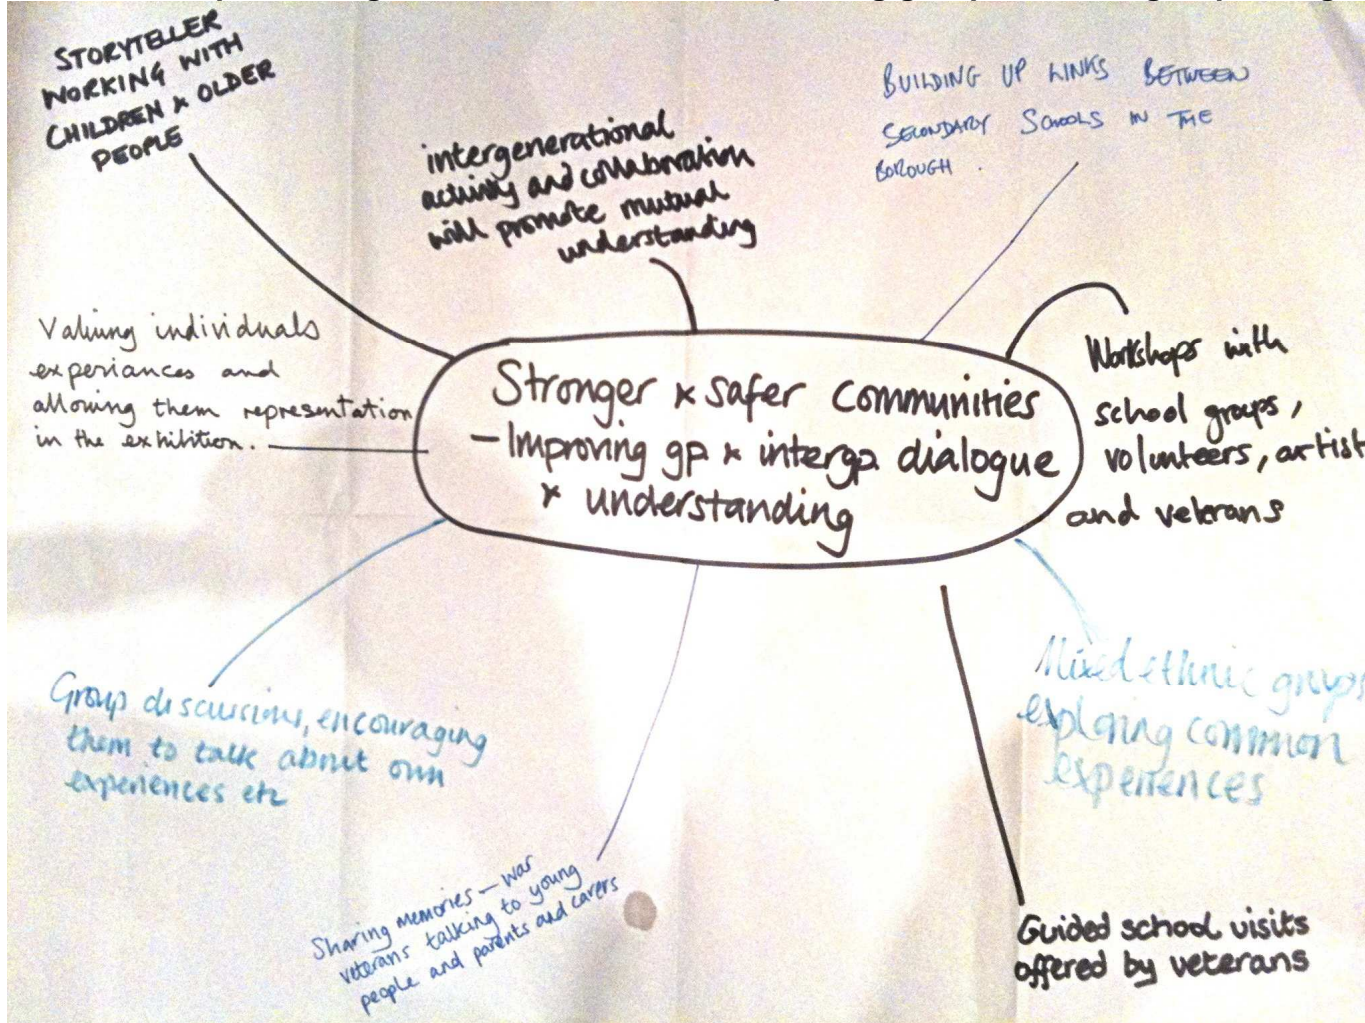 STORYTELLER
WORKING WITH
CHILDREN & OLDER
PEOPLE
intergenerational
activity and collaboration
will promote mutual
understanding
BUILDING UP LINKS BETWEEN
SECONDARY SCHOOLS IN THE
BOROUGH.
Valuing individuals
experiances and
allowing them representation
in the exhibition.
Stronger & safer communities
- Improving gp & intergp. dialogue
& understanding
Workshops with
school groups,
volunteers, artist
and veterans
Group discussions, encouraging
them to talk about own
experiences etc
Mixed ethnic groups
exploring common
experiences
Sharing memories - war
veterans talking to young
people and parents and carers
Guided school visits
offered by veterans